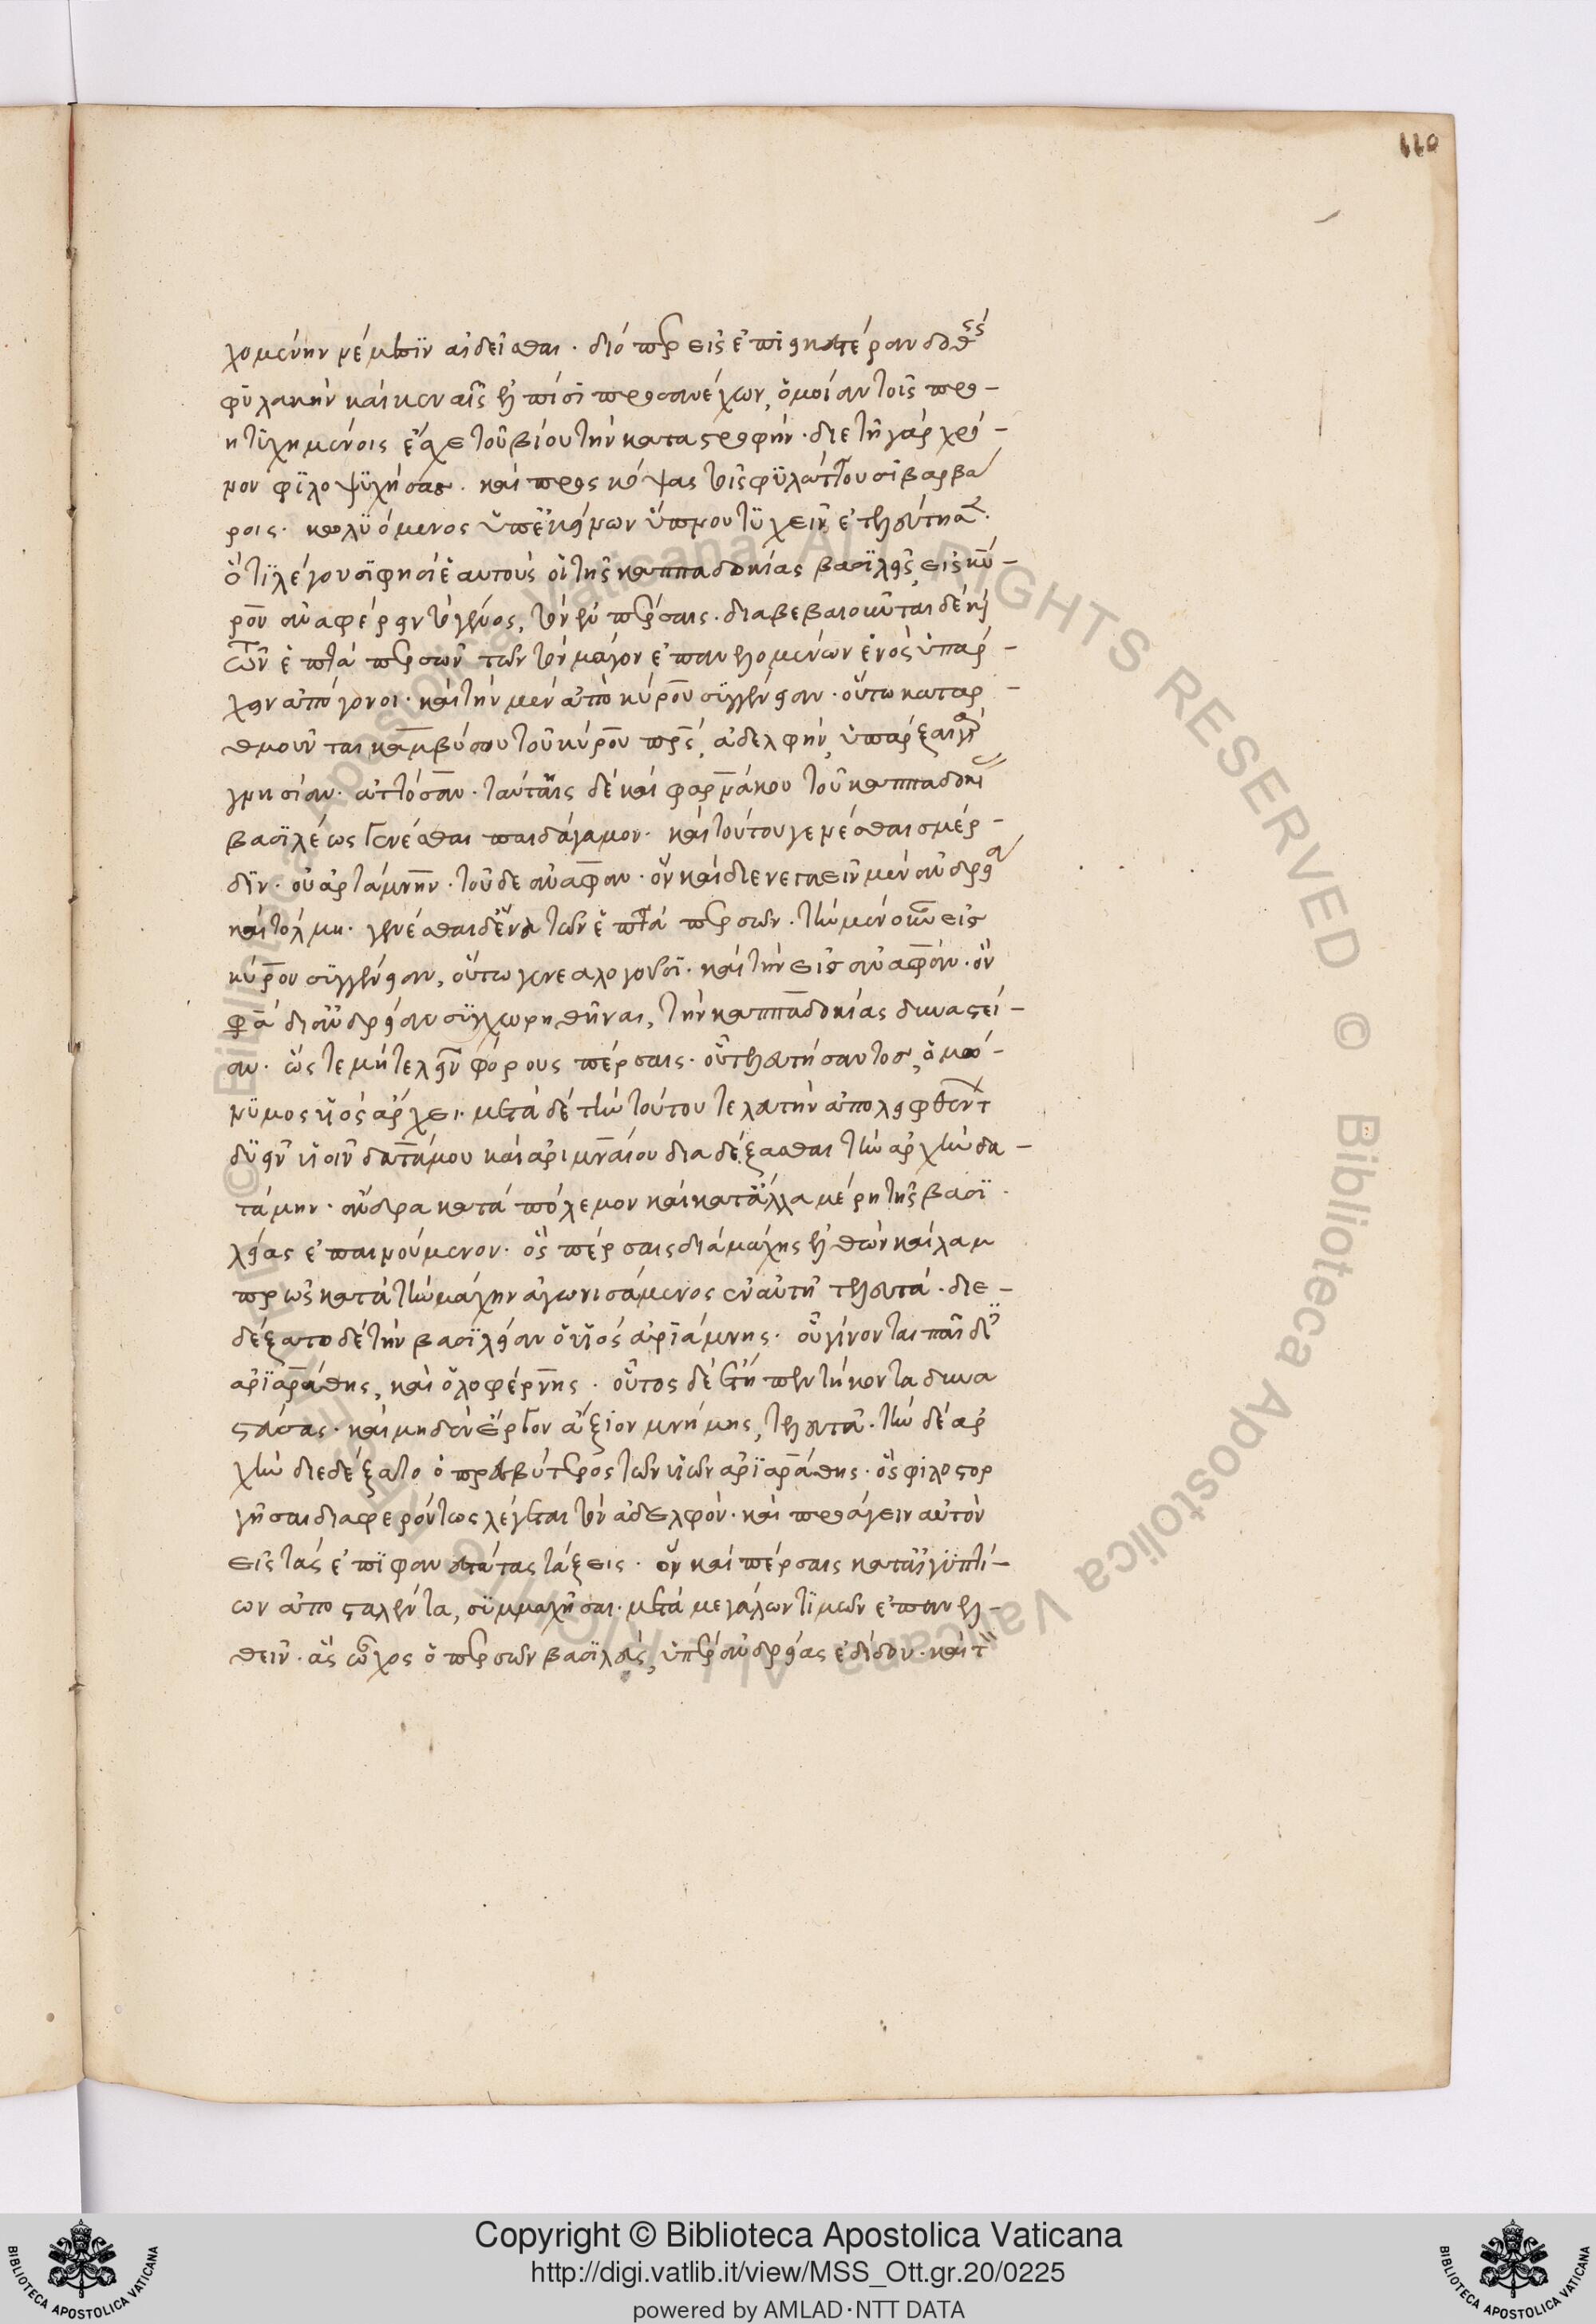 110
γομένην νέμεσϊν αἰδεῖσθαι. διόπερ εἰς ἐπιεικεστέραν δοθεὶς
φϋλακὴν καὶ κεναῖς ἐλπίσϊ προσανέχων, ὁμοίαν τοῖς προ-
ητϋχημένοις ἔσχε τοῦ βίου τὴν καταστροφήν. διετῆ γὰρ χρό-
νον φϊλοψϋχήσας. καὶ προσκόψας τοῖς φϋλάττουσϊ βαρβά
ροις. κωλϋόμενος ὑπ' ἐκείνων ὕπνου τϋχεῖν ἐτελεύτησε.
ὅτϊ λέγουσϊ φησὶ ἑαυτοὺς οἱ τῆς καππαδοκίας βασϊλεῖς, εἰς κύ-
ρον ἀναφέρειν τὸ γένος, τὸν ἐν πέρσαις. διαβεβαιοῦνται δὲ καὶ
τῶν ἑπτὰ περσῶν τῶν τὸν μάγον ἐπανελομένων ἑνὸς ὑπάρ-
χειν ἀπόγονοι. καὶ τὴν μὲν ἀπὸ κύρου σϋγγένειαν. οὕτω καταρ-
θμοῦνται καμβύσου τοῦ κύρου πατρός, ἀδελφὴν, ὑπάρξαι
γνησίαν. ἀττόσαν. ταύτης δὲ καὶ φαρνάκου τοῦ καππαδοκί
βασϊλέως γενέσθαι παῖδα γάμον. καὶ τούτου γενέσθαι σμέρ-
δϊν. οὗ ἀρτάμνην. τοῦ δὲ ἀναφᾶν. ὃν καὶ διενεγκεῖν μὲν ἀνδρεία
καὶ τόλμη. γενέσθαι δὲ ἕνα τῶν ἑπτὰ περσῶν. τὴν μὲν οὖν εἰς
κύρον σϋγγένειαν, οὕτω γενεαλογοῦσϊ. καὶ τὴν εἰς ἀναφᾶν. ὃν
φασὶ δι' ἀνδρείαν σϋγχωρηθῆναι, τὴν καππαδοκίας δυναστεί-
αν. ὥστε μὴ τελεῖν φόρους πέρσαις. οὗ τελευτήσαντος, ὁμώ-
νϋμος υἱὸς ἄρχει. μετὰ δὲ τὴν τούτου τελευτὴν ἀπολειφθέντ
δϋεῖν υἱοῖν δατάμου καὶ ἀριμναίου διαδέξασθαι τὴν ἀρχὴν δα-
τάμην. ἄνδρα κατὰ πόλεμον καὶ κατ' ἄλλα μέρη τῆς βασϊ
λείας ἐπαινούμενον. ὃς πέρσαις διὰ μάχης ἐλθὼν καὶ λαμ
πρῶς κατὰ τὴν μάχην ἀγωνισάμενος ἐν αὐτῇ τελευτᾶ. διε-
δέξατο δὲ τὴν βασϊλείαν ὁ υἱὸς ἀρϊάμνης. οὗ γίνονται παῖδε
ἀρϊαράθης, καὶ ὀλοφέρνης. οὗτος δὲ ἔτη πεντήκοντα δυνα
στεύσας. καὶ μηδὲν ἔργον ἄξϊον μνήμης, τελευτᾶ. τὴν δὲ ἀρ
χὴν διεδέξατο ὁ πρεσβύτερος τῶν υἱῶν ἀρϊαράθης. ὃς φιλοστορ
γῆσαι διαφερόντως λέγεται τὸν ἀδελφόν. καὶ προάγειν αὐτὸν
εἰς τὰς ἐπϊφανεστάτας τάξεις. ὃν καὶ πέρσαις κατ' αἰγϋπτί-
ων ἀποσταλέντα, σϋμμαχῆσαι. μετὰ μεγάλων τϊμῶν ἐπανελ-
θεῖν. ἃς ὦχος ὁ περσῶν βασϊλεὺς, ὑπὲρ ἀνδρείας ἐδίδου. καὶ τ
Copyright © Biblioteca Apostolica Vaticana
http://digi.vatlib.it/view/MSS_Ott.gr.20/0225
powered by AMLAD·NTT DATA